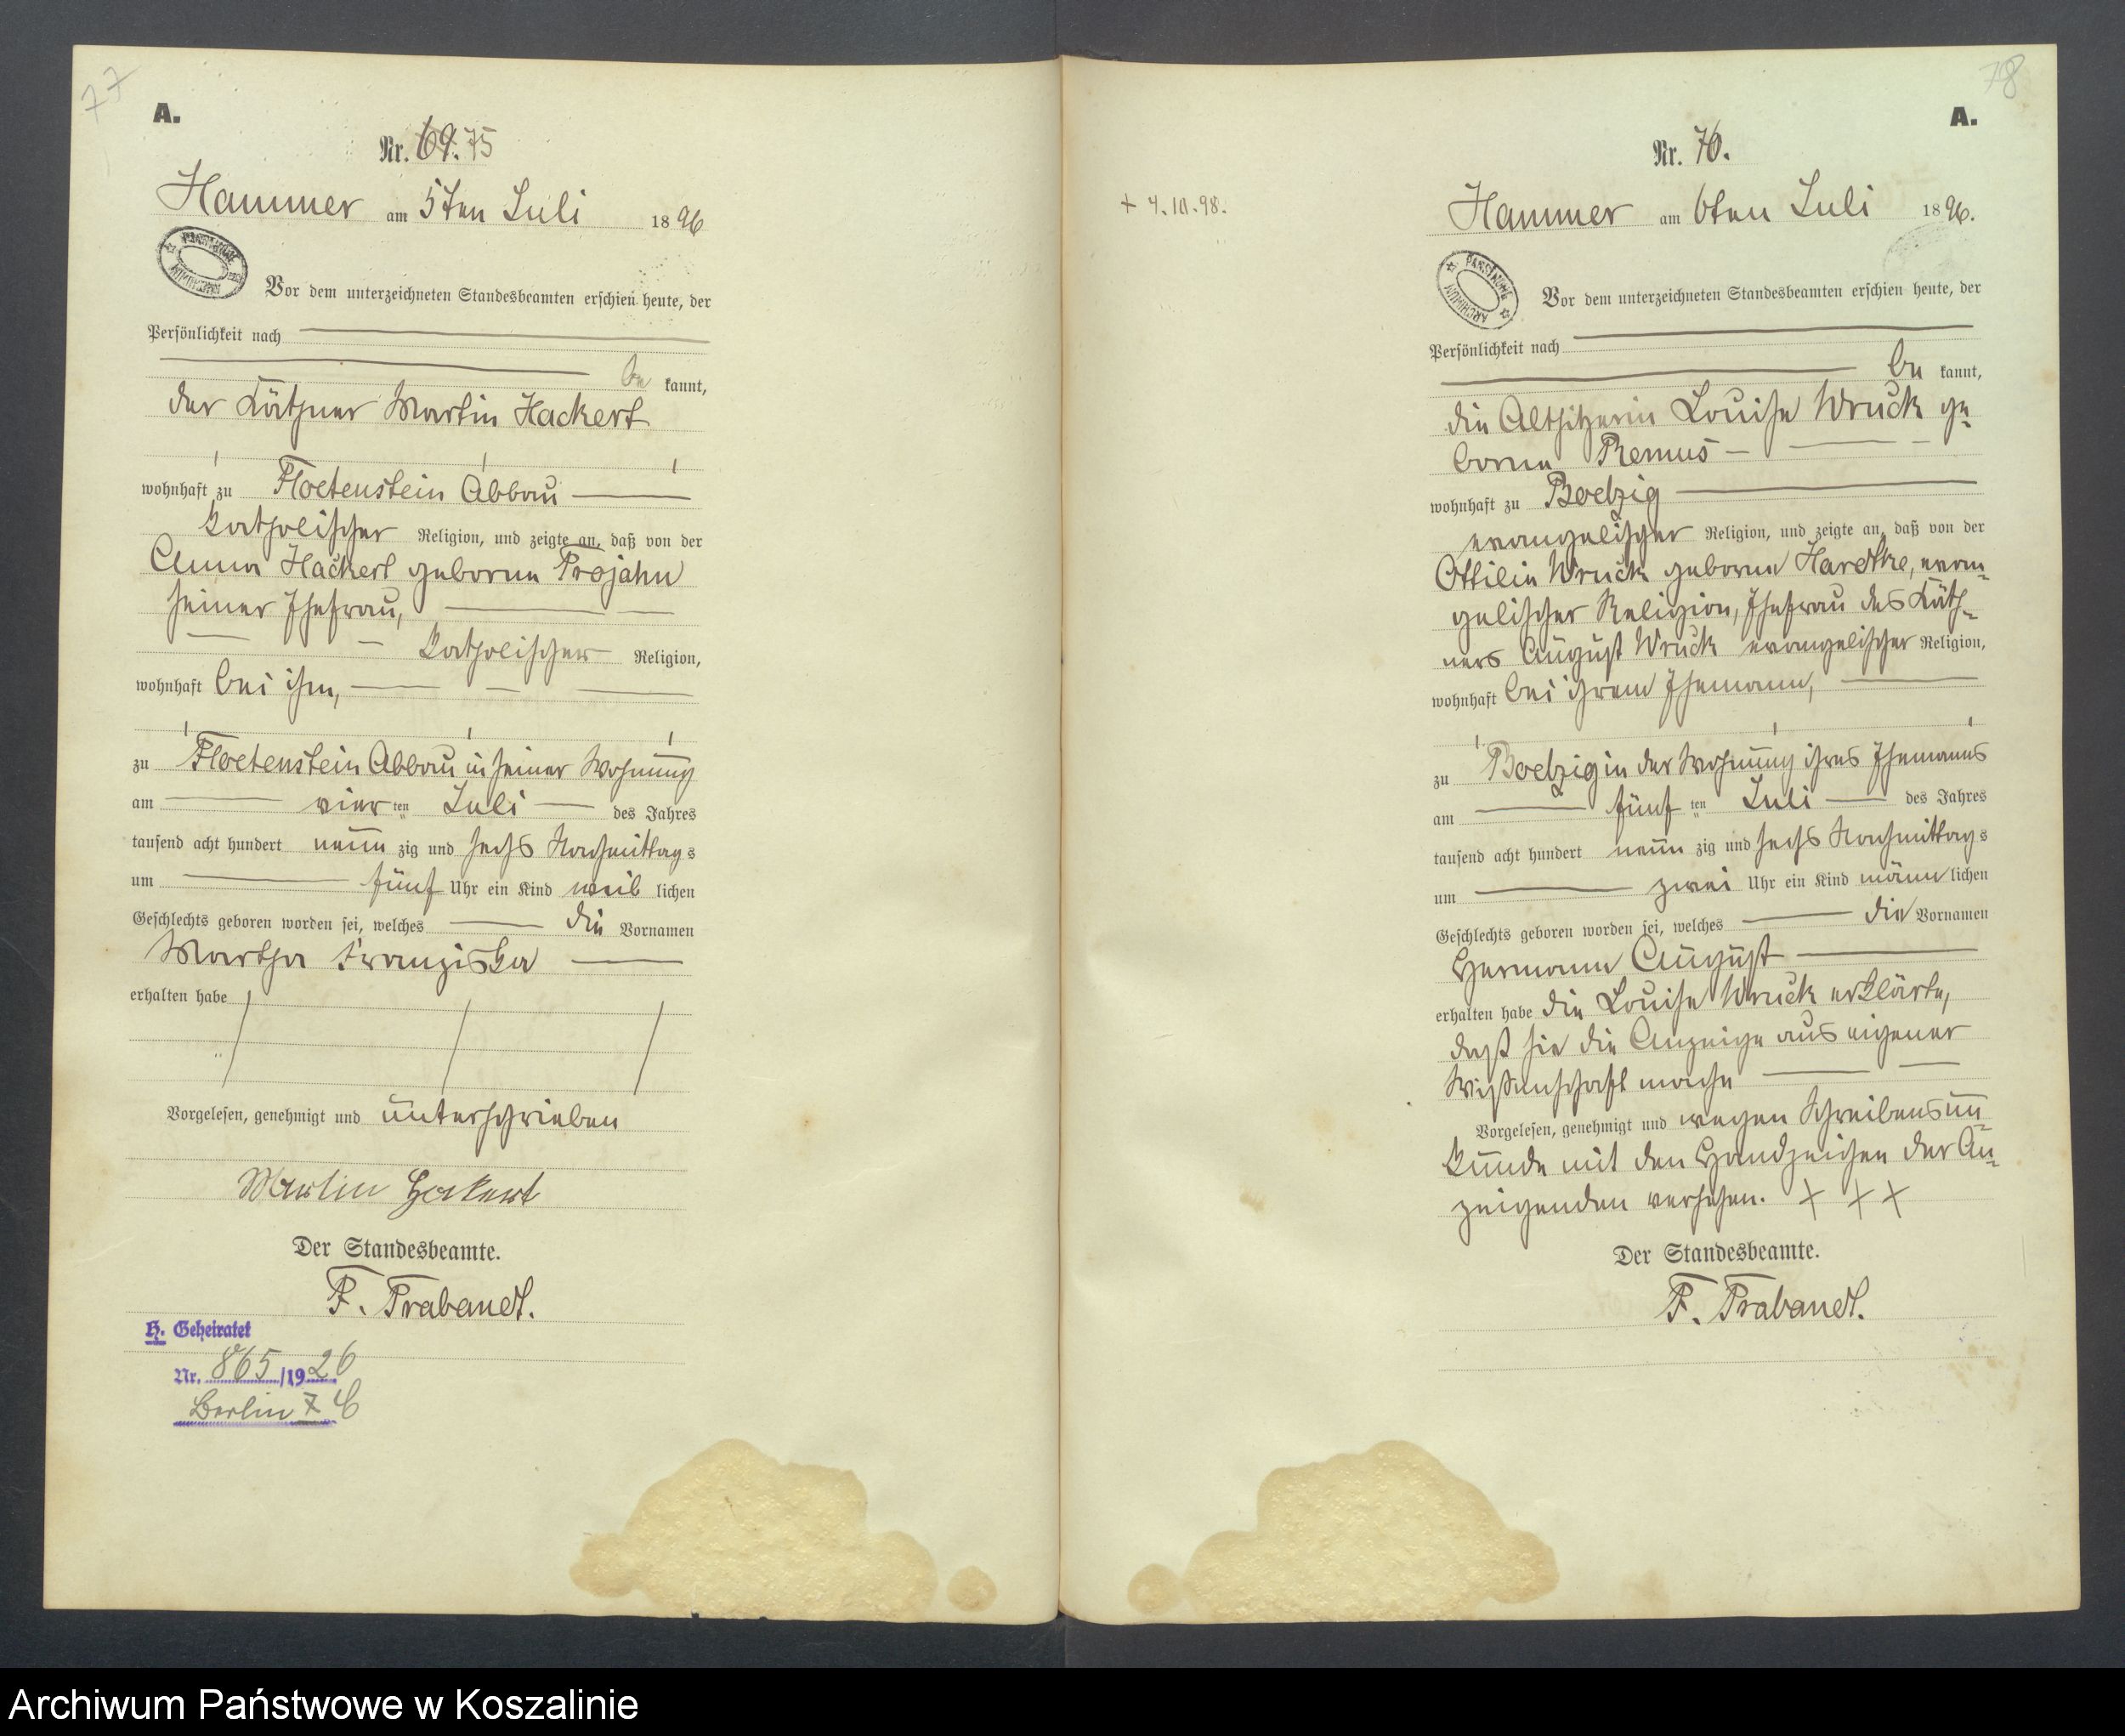 77
A.
Nr. 69. 75
Hammer am 5ten Juli 1896
Vor dem unterzeichneten Standesbeamten erschien heute, der
Persönlichkeit nach
be kannt,
der Käthner Martin Hackert
wohnhaft zu Floetenstein Abbau
katholischer Religion, und zeigte an, daß von der
Anna Hackert geborene Projahn
seiner Ehefrau,
katholischer Religion,
wohnhaft bei ihm,
zu Floetenstein Abbau in seiner Wohnung
am vier ten Juli des Jahres
tausend acht hundert neun zig und sechs Nachmittags
um fünf Uhr ein Kind weib lichen
Geschlechts geboren worden sei, welches die Vornamen
Martha Franziska
erhalten habe
Vorgelesen, genehmigt und unterschrieben
Martin Hackert
Der Standesbeamte.
F. Trabandt.
H. Geheiratet
Nr. 865/1926
Berlin 7 C
78
A.
Nr. 70.
+ 4.10.98.
Hammer am 6ten Juli 1896.
PAŃSTWOWE
ARCHIWUM
Vor dem unterzeichneten Standesbeamten erschien heute, der
Persönlichkeit nach
be kannt,
die Altsitzerin Louise Wruck ge-
borene Remus
wohnhaft zu Boelzig
evangelischer Religion, und zeigte an, daß von der
Ottilie Wruck geborene Hardtke, evan-
gelischer Religion, Ehefrau des Käth-
ners August Wruck evangelischer Religion,
wohnhaft bei ihrem Ehemann,
zu Boelzig in der Wohnung ihres Ehemanns
am fünf ten Juli des Jahres
tausend acht hundert neun zig und sechs Nachmittags
um zwei Uhr ein Kind männ lichen
Geschlechts geboren worden sei, welches die Vornamen
Hermann August
erhalten habe die Louise Wruck erklärte,
daß sie die Anzeige aus eigener
Wissenschaft mache
Vorgelesen, genehmigt und wegen Schreibensun-
kunde mit den Handzeichen der An-
zeigenden versehen. + + +
Der Standesbeamte.
F. Trabandt.
Archiwum Państwowe w Koszalinie